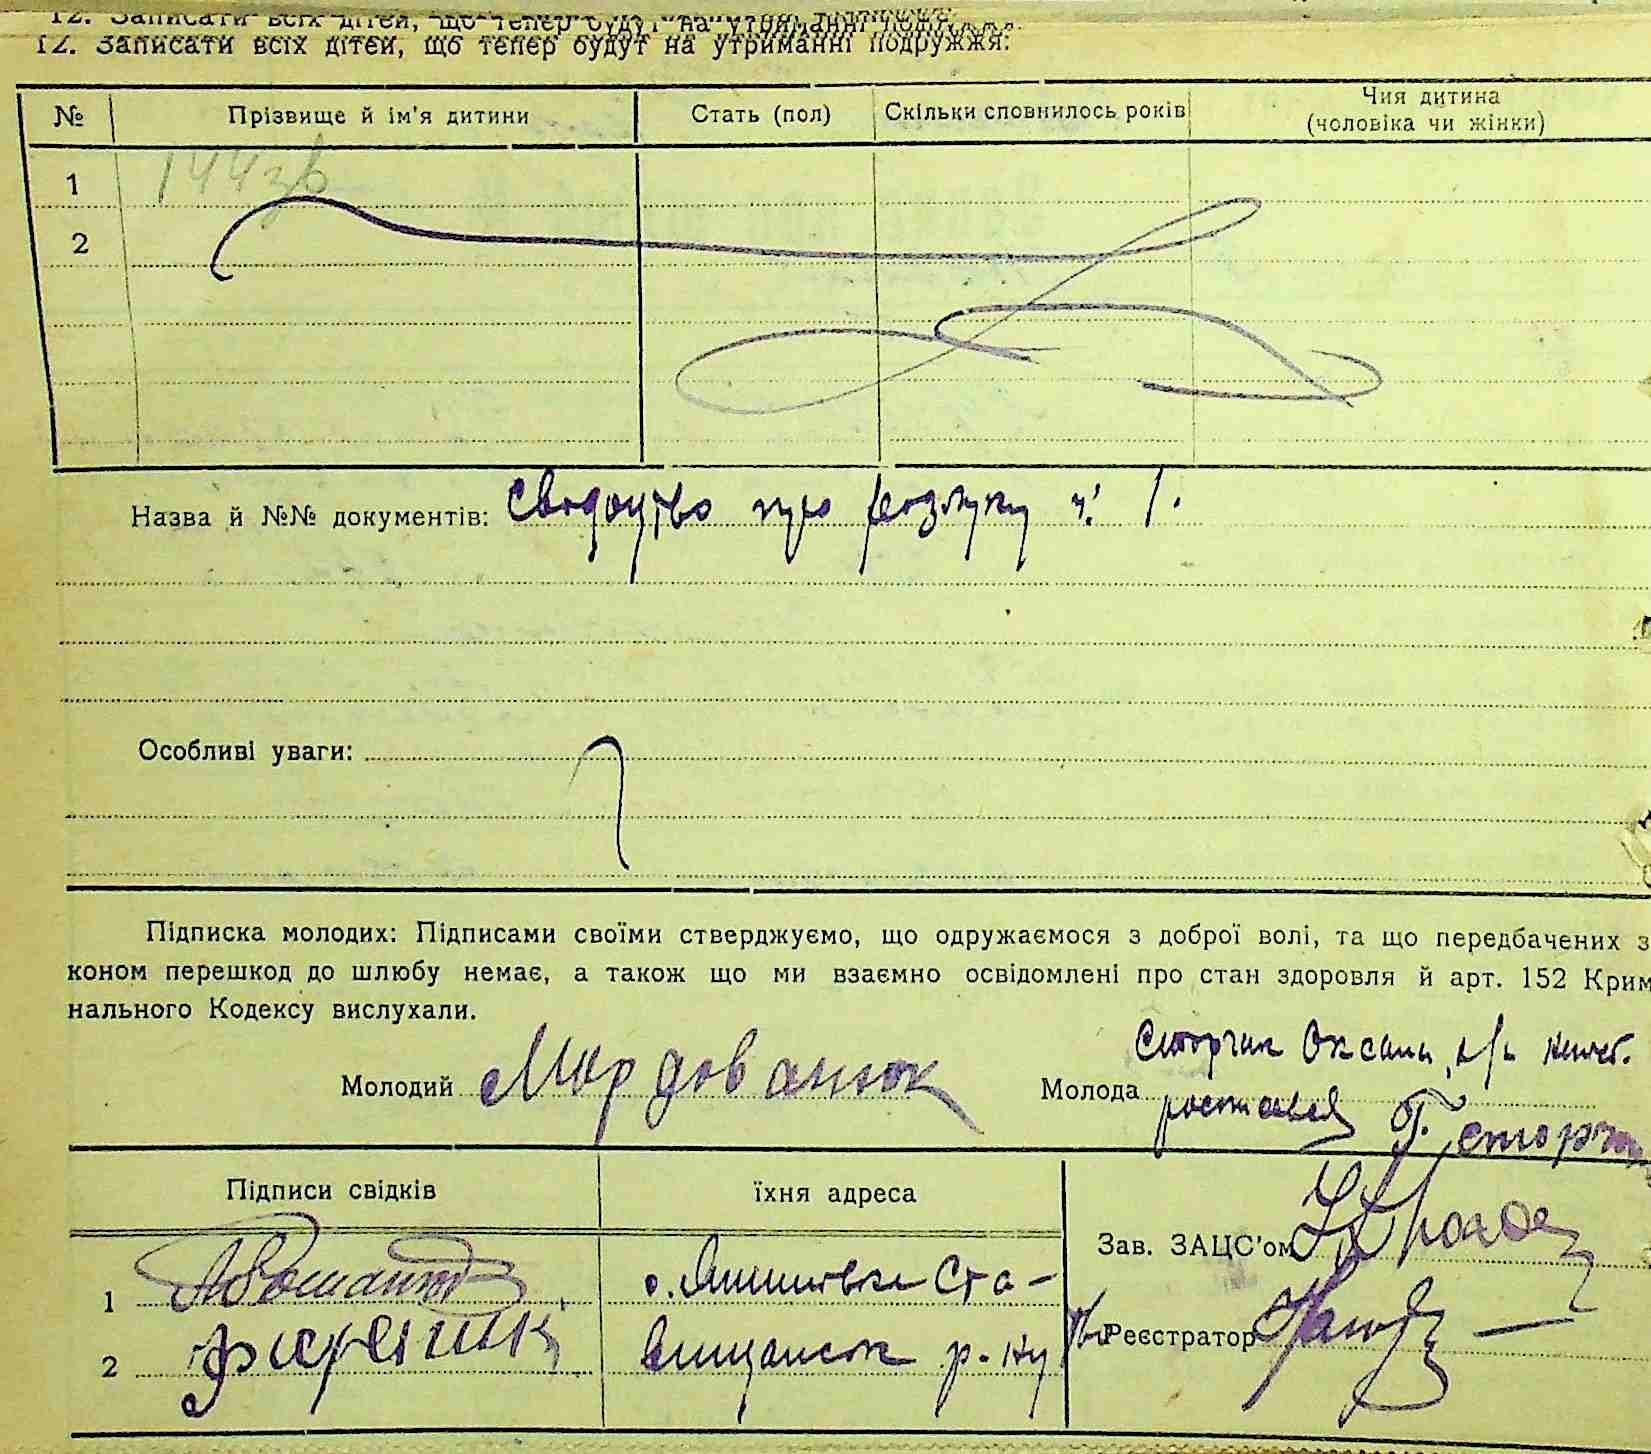 12. Записати всіх дітей, що тепер будут на утриманні подружжя:
12. Записати всіх дітей, що тепер будут на утриманні подружжя:
№ Прізвище й ім'я дитини Стать (пол) Скільки сповнилось років Чия дитина
(чоловіка чи жінки)
1
2
Назва й №№ документів: Свідоцтво про розлуку ч. 1.
Особливі уваги:
Підписка молодих: Підписами своїми стверджуємо, що одружаємося з доброї волі, та що передбачених з
коном перешкод до шлюбу немає, а також що ми взаємно освідомлені про стан здоровля й арт. 152 Крим
нального Кодексу вислухали.
Сторчак Оксана
Молодий Мордованюк Молода
Підписи свідків їхня адреса
Зав. ЗАЦС'ом
1 Ста-
2 вищанськ р-ну Реєстратор